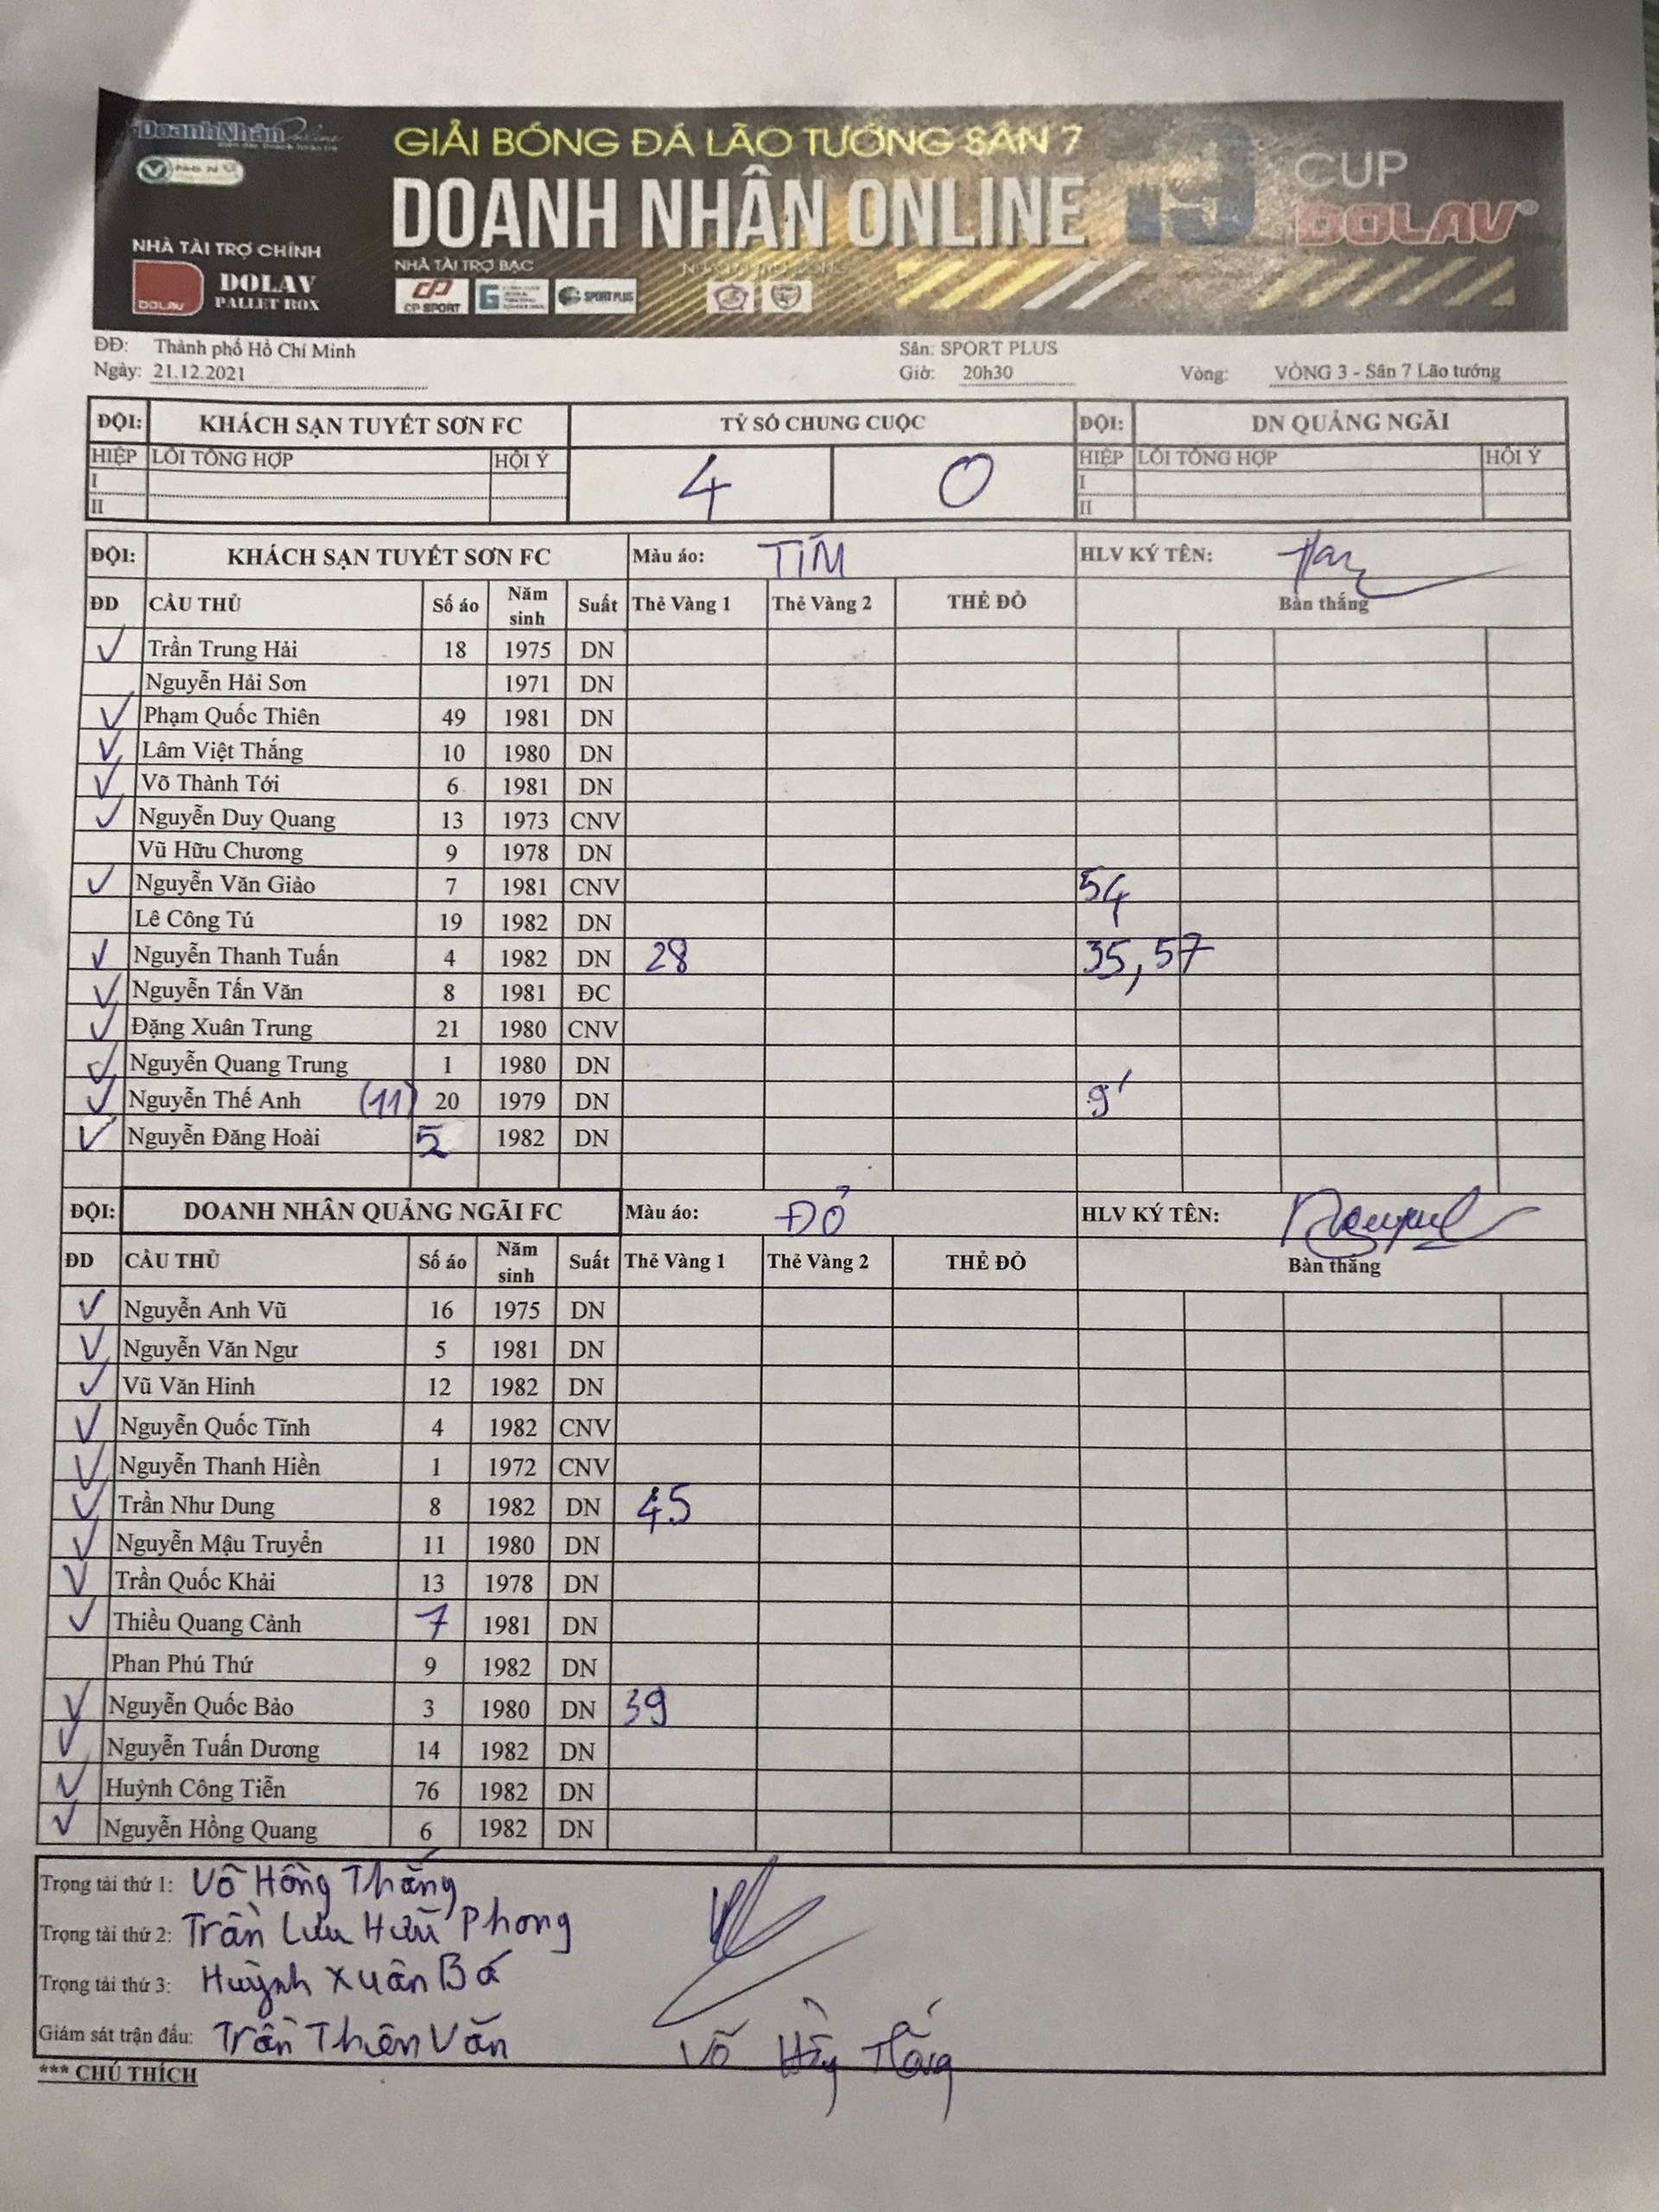 DoanhNhân Online
GIẢI BÓNG ĐÁ LÃO TƯỚNG SÂN 7
DOANH NHÂN ONLINE
CUP
DOLAV
NHÀ TÀI TRỢ CHÍNH
DOLAV
DOLAV
PALLET BOX
NHÀ TÀI TRỢ BẠC
CP SPORT
SPORT PLUS
ĐĐ: Thành phố Hồ Chí Minh Sân: SPORT PLUS
Ngày: 21.12.2021 Giờ: 20h30 Vòng: VÒNG 3 - Sân 7 Lão tướng
ĐỘI: KHÁCH SẠN TUYẾT SƠN FC TỶ SỐ CHUNG CUỘC ĐỘI: DN QUẢNG NGÃI
HIỆP LỖI TỔNG HỢP HỘI Ý 4 0 HIỆP LỖI TỔNG HỢP HỘI Ý
I I
II II
ĐỘI: KHÁCH SẠN TUYẾT SƠN FC Màu áo: TÍM HLV KÝ TÊN:
ĐD CẦU THỦ Số áo Năm sinh Suất Thẻ Vàng 1 Thẻ Vàng 2 THẺ ĐỎ Bàn thắng
Trần Trung Hải 18 1975 DN
Nguyễn Hải Sơn 1971 DN
Phạm Quốc Thiên 49 1981 DN
Lâm Việt Thắng 10 1980 DN
Võ Thành Tới 6 1981 DN
Nguyễn Duy Quang 13 1973 CNV
Vũ Hữu Chương 9 1978 DN
Nguyễn Văn Giảo 7 1981 CNV 54
Lê Công Tú 19 1982 DN
Nguyễn Thanh Tuấn 4 1982 DN 28 35, 57
Nguyễn Tấn Văn 8 1981 ĐC
Đặng Xuân Trung 21 1980 CNV
Nguyễn Quang Trung 1 1980 DN
Nguyễn Thế Anh (11) 20 1979 DN 9'
Nguyễn Đăng Hoài 5 1982 DN
ĐỘI: DOANH NHÂN QUẢNG NGÃI FC Màu áo: ĐỎ HLV KÝ TÊN:
ĐD CẦU THỦ Số áo Năm sinh Suất Thẻ Vàng 1 Thẻ Vàng 2 THẺ ĐỎ Bàn thắng
Nguyễn Anh Vũ 16 1975 DN
Nguyễn Văn Ngư 5 1981 DN
Vũ Văn Hinh 12 1982 DN
Nguyễn Quốc Tĩnh 4 1982 CNV
Nguyễn Thanh Hiền 1 1972 CNV
Trần Như Dung 8 1982 DN 45
Nguyễn Mậu Truyền 11 1980 DN
Trần Quốc Khải 13 1978 DN
Thiều Quang Cảnh 7 1981 DN
Phan Phú Thứ 9 1982 DN
Nguyễn Quốc Bảo 3 1980 DN 39
Nguyễn Tuấn Dương 14 1982 DN
Huỳnh Công Tiễn 76 1982 DN
Nguyễn Hồng Quang 6 1982 DN
Trọng tài thứ 1: Võ Hồng Thắng
Trọng tài thứ 2: Trần Lưu Hữu Phong
Trọng tài thứ 3: Huỳnh Xuân Bá
Giám sát trận đấu: Trần Thiên Văn
Võ Hồng Thắng
*** CHÚ THÍCH